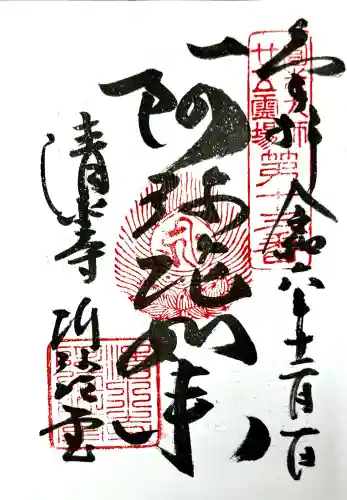 奉拝 令和六年十二月一日
圓光大師
廿五霊場 第十三番
阿弥陀如来
清水寺 阿弥陀堂